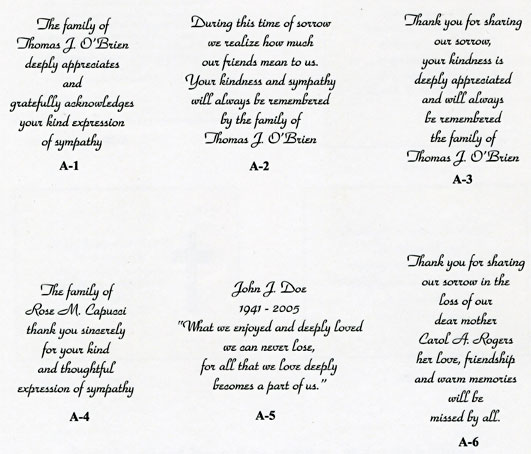 The family of
Thomas J. O'Brien
deeply appreciates
and
gratefully acknowledges
your kind expression
of sympathy
A-1
During this time of sorrow
we realize how much
our friends mean to us.
Your kindness and sympathy
will always be remembered
by the family of
Thomas J. O'Brien
A-2
Thank you for sharing
our sorrow,
your kindness is
deeply appreciated
and will always
be remembered
the family of
Thomas J. O'Brien
A-3
The family of
Rose M. Capucci
thank you sincerely
for your kind
and thoughtful
expression of sympathy
A-4
John J. Doe
1941 - 2005
"What we enjoyed and deeply loved
we can never lose,
for all that we love deeply
becomes a part of us."
A-5
Thank you for sharing
our sorrow in the
loss of our
dear mother
Carol A. Rogers
her love, friendship
and warm memories
will be
missed by all.
A-6